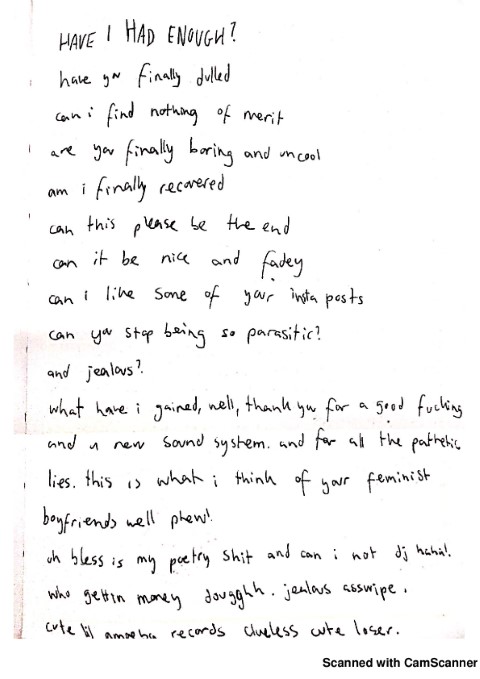 HAVE I HAD ENOUGH?
have you finally dulled
can i find nothing of merit
are you finally boring and uncool
am i finally recovered
can this please be the end
can it be nice and fadey
can i like some of your insta posts
can you stop being so parasitic?
and jealous?
what have i gained, well, thank you for a good fucking
and a new sound system. and for all the pathetic
lies. this is what i think of your feminist
boyfriends well phew!
oh bless is my poetry shit and can i not dj haha!.
who gettin money dougghh. jealous asswipe.
cute lil amoeba records clueless cute loser.
Scanned with CamScanner